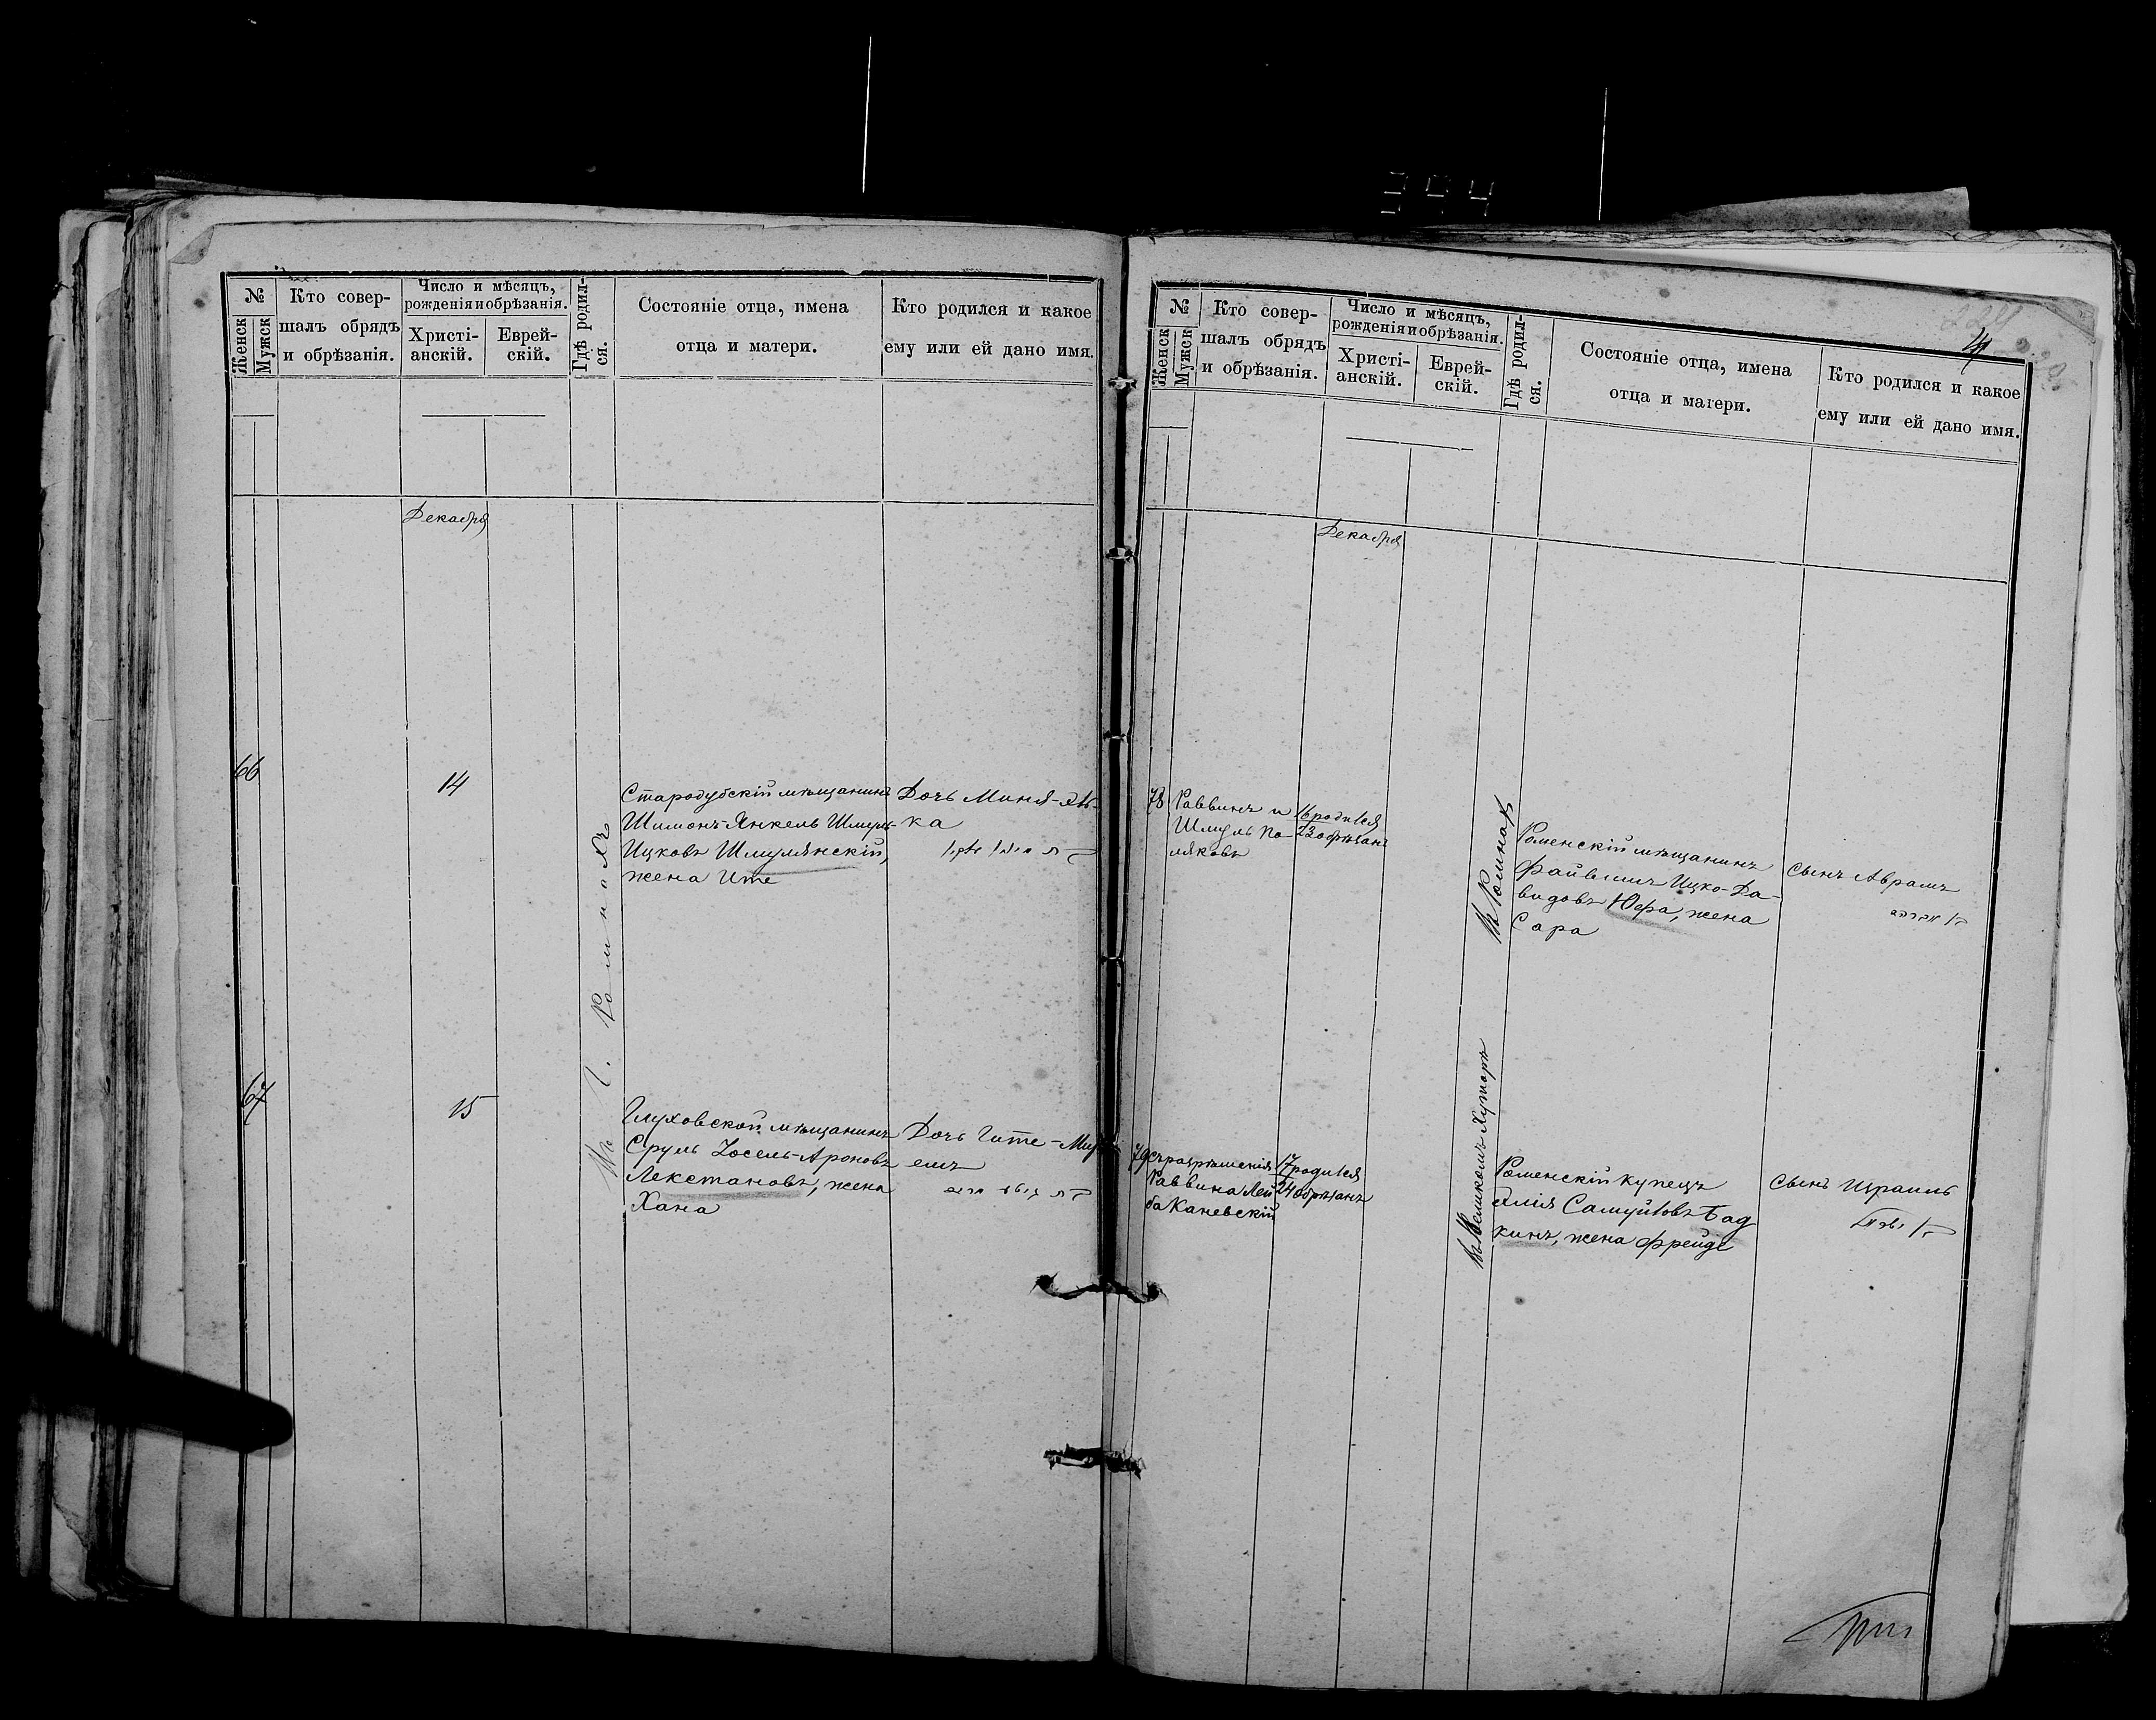 394
№
Женск
Мужск
Кто совер-
шалъ обрядъ
и обрѣзанія.
Число и мѣсяцъ,
рожденія и обрѣзанія.
Христі-
анскій.
Еврей-
скій.
Гдѣ родил-
ся.
Состояніе отца, имена
отца и матери.
Кто родился и какое
ему или ей дано имя.
Декабря
66
14
Въ г. Ромнахъ
Стародубскій мѣщанинъ
Шимонъ-Янкель Шмуль-
Ицковъ Шмулянскій,
жена Ите
Дочь Миня-Ѳь-
ка
67
15
Глуховской мѣщанинъ
Сруль Іосель-Ароновъ
Лекстановъ, жена
Хана
Дочь Гите-Мир
емъ
24
№
Женск
Мужск
Кто совер-
шалъ обрядъ
и обрѣзанія.
Число и мѣсяцъ,
рожденія и обрѣзанія.
Христі-
анскій.
Еврей-
скій.
Гдѣ родил-
ся.
Состояніе отца, имена
отца и матери.
Кто родился и какое
ему или ей дано имя.
Декабря
78
Раввинъ и
Шмуль По-
ляковъ
16 родился
23 обрѣзанъ
Въ Ромнахъ
Роменскій мѣщанинъ
Файвишъ Ицко-Да-
видовъ Юфа, жена
Сара
Сынъ Абрамъ
79
Съ разрѣшенія
Раввина Лей
ба Каневскій
17 родился
24 обрѣзанъ
Хуторѣ
Роменскій купецъ
Элія Самуйловъ Бад
кинъ, жена Фрейде
Сынъ Израиль